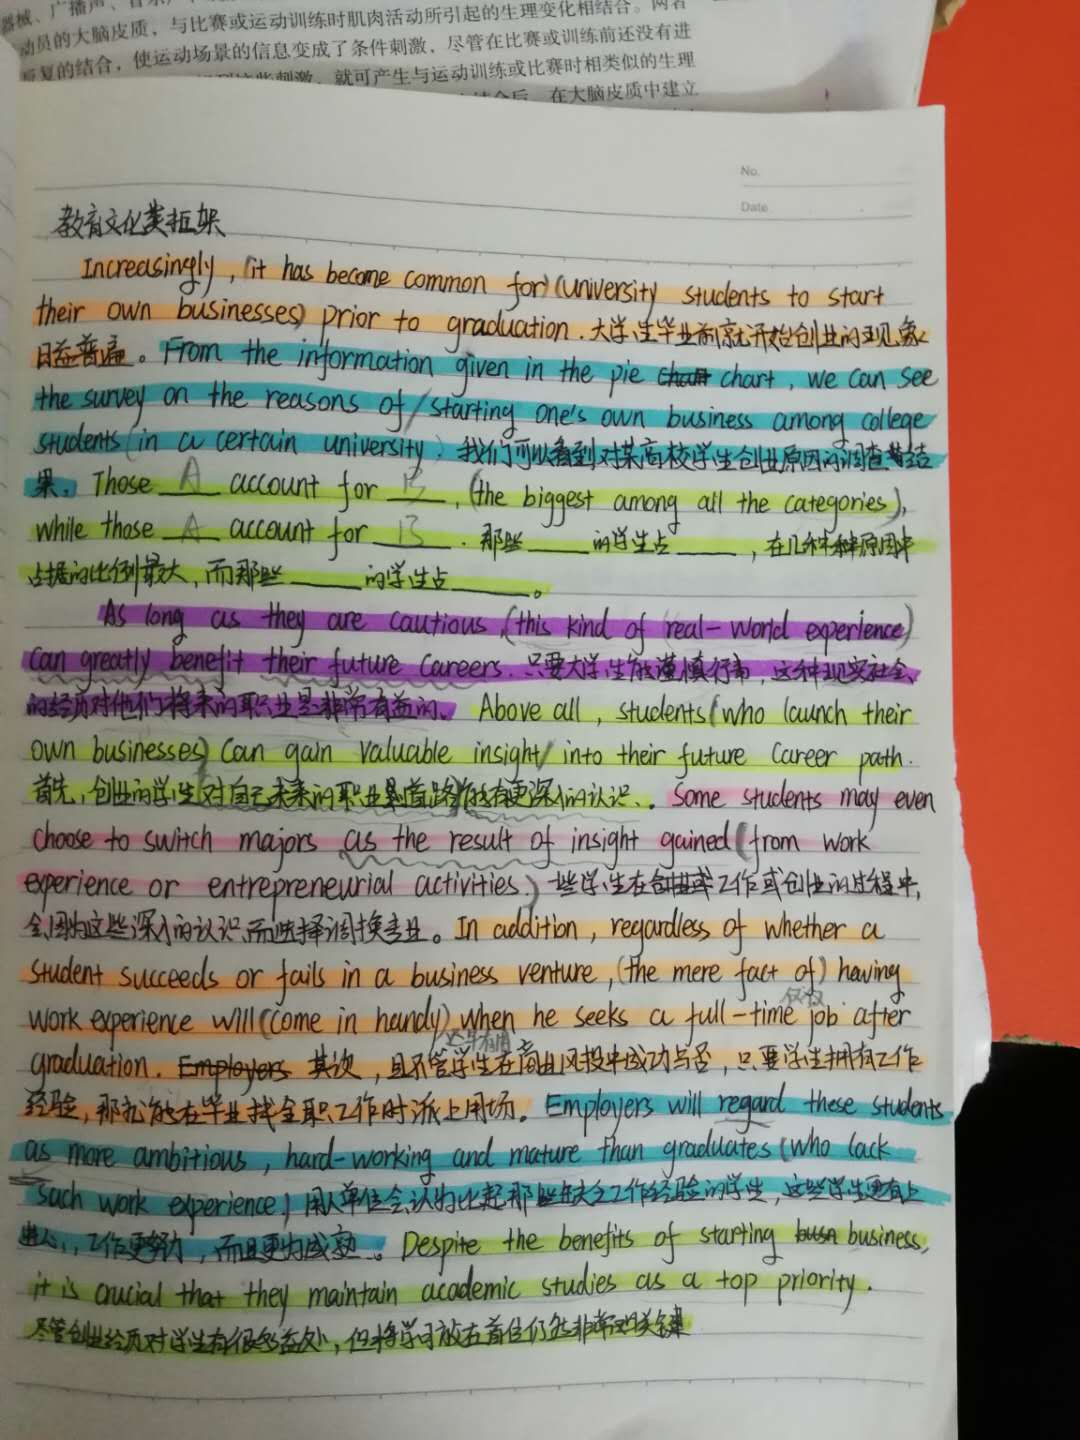 器械、广播声、音乐
动员的大脑皮质，与比赛或运动训练时肌肉活动所引起的生理变化相结合。两者
反复的结合，使运动场景的信息变成了条件刺激，尽管在比赛或训练前还没有进
这些刺激，就可产生与运动训练或比赛时相类似的生理
结合后，在大脑皮质中建立
No.
Date
教育文化类框架
Increasingly, (it has become common for) (university students to start
their own businesses) prior to graduation. 大学生毕业前就开始创业的现象
日益普遍。From the information given in the pie chart chart, we can see
the survey on the reasons of/starting one's own business among college
students (in a certain university). 我们可以看到对某高校学生创业原因的调查总结
果。Those A account for B, (the biggest among all the categories),
while those A account for B. 那些____的学生占____，在几种种原因中
占据的比例最大，而那些____的学生占____。
As long as they are cautious, (this kind of real-world experience)
can greatly benefit their future careers. 只要大学生能谨慎行事，这种现实社会
的经历对他们将来的职业是非常有益的。Above all, students (who launch their
own businesses) can gain valuable insight/into their future career path.
首先，创业的学生对自己未来的职业道路能有更深入的认识。Some students may even
choose to switch majors as the result of insight gained (from work
experience or entrepreneurial activities.) 一些学生在创业或工作或创业的过程中，
会因为这些深入的认识而选择调换专业。In addition, regardless of whether a
student succeeds or fails in a business venture, (the mere fact of) having
仅仅
work experience will (come in handy) when he seeks a full-time job after
迟早有用
graduation. Employers 其次，且不管学生在商业风投中成功与否，只要学生拥有工作
经验，那就能在毕业找全职工作时派上用场。Employers will regard these students
as more ambitious, hard-working and mature than graduates (who lack
such work experience.) 用人单位会认为比起那些缺乏工作经验的学生，这些学生更有上
进心，工作更努力，而且更为成熟。Despite the benefits of starting busn business,
it is crucial that they maintain academic studies as a top priority.
尽管创业经历对学生有很多益处，但将学习放在首位仍然非常关键